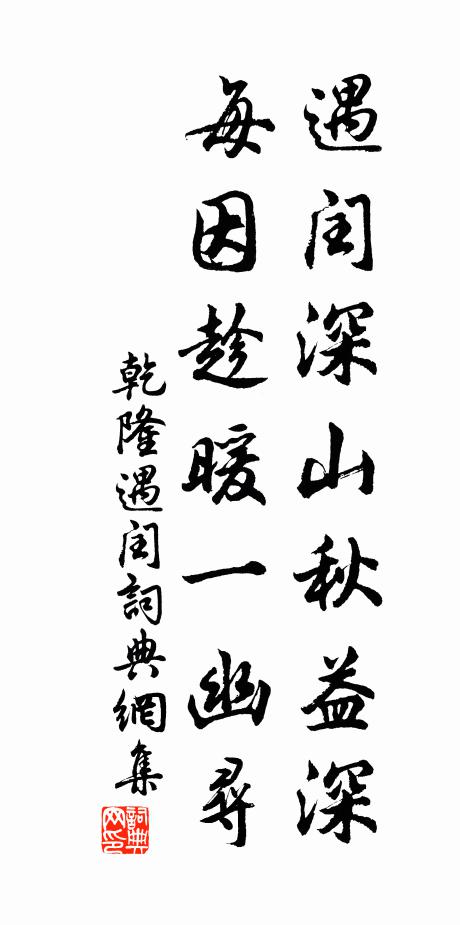 遇閏深山秋益深
每因趁暖一幽尋
乾隆遇閏詞典網集
詞典网印